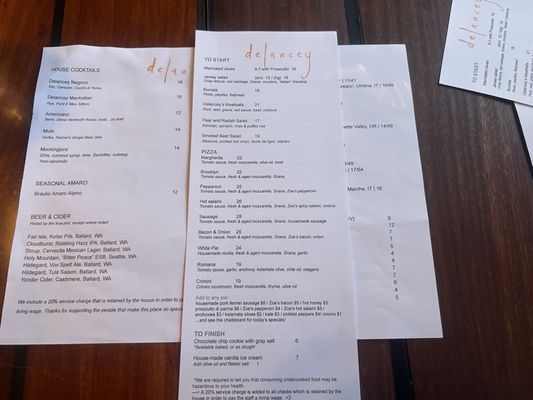 delancey
HOUSE COCKTAILS
Delancey Negroni 16
Gin, Campari, Cocchi di Torino
Delancey Manhattan 16
Rye, Punt E Mes, bitters
Americano 12
soda, on draft
Mule 14
Vodka, Rachel's Ginger Beer, lime
Mockingbird 14
Ghia, coconut syrup, lime, nutmeg
*non-alcoholic
SEASONAL AMARO
Braulio Amaro Alpino 12
BEER & CIDER
Priced by the true pint, except where noted
Fair Isle, Keller Pils, Ballard, WA
Cloudburst, Rotating Hazy IPA, Ballard, WA
Stoup, Cervecita Mexican Lager, Ballard, WA
Holy Mountain, "Bitter Peace" ESB, Seattle, WA
Hildegard, Vox Spelt Ale, Ballard, WA
Hildegard, Tula Saison, Ballard, WA
Yonder Cider, Cashmere, Ballard, WA
We include a 20% service charge that is retained by the house in order to
living wage. Thanks for supporting the people that make this place so
delancey
TO START
Marinated olives 9 // with Prosciutto 16
Jersey salad (sm) 12 / (lg) 18
Crisp lettuce, red cabbage, Grana, croutons, "Italian" dressing
Burrata 18
Pesto, pepitas, flatbread
Delancey's Meatballs 21
Pork, veal, grana, red sauce, basil,
Pear and Radish Salad 17
Kohlrabi, spinach, miso & puffed rice
Smoked Beet Salad 19
Albacore, pickled red onion,
PIZZA
Margherita 22
Tomato sauce, fresh & aged mozzarella, olive oil, basil
Brooklyn 22
Tomato sauce, fresh & aged mozzarella, Grana
Pepperoni 25
Tomato sauce, fresh & aged mozzarella, Grana, Zoe's pepperoni
Hot salami 26
Tomato sauce, fresh & aged mozzarella, Grana, Zoe's spicy salami, onions
Sausage 28
Tomato sauce, fresh & aged mozzarella, Grana, housemade sausage
Bacon & Onion 25
Tomato sauce, fresh & aged mozzarella, Grana, Zoe's bacon, onion
White Pie 24
Housemade ricotta, fresh & aged mozzarella, Grana, garlic
Romana 19
Tomato sauce, garlic, anchovy, kalamata olive, chile oil, oregano
Crimini 19
Crimini mushroom, fresh mozzarella, thyme, olive oil
Add to any pie:
housemade pork fennel sausage $6 / Zoe's bacon $5 / hot honey $3
prosciutto di parma $6 / Zoe's pepperoni $4 / Zoe's hot salami $5 /
anchovies $3 / kalamata olives $2 / kale $3 / pickled peppers $4/ onions $1
...and see the chalkboard for today's specials!
TO FINISH
Chocolate chip cookie with gray salt 6
*Available baked, or as dough!
House-made vanilla ice cream 7
Add olive oil and flaked salt 1
*We are required to tell you that consuming undercooked food may be
hazardous to your health.
---> A 20% service charge is added to all checks which is retained by the
house in order to pay the staff a living wage. <3
11/41
Umbria, IT | 16/60
Valley, OR | 14/49
17/64
Marche, IT | 16
8
12
7
7
5
4
4
7
7
6
4
5
delancey
TO START
Marinated olives 9 // with Prosciutto 16
Jersey salad (sm) 12 / (lg) 18
Burrata 18
Delancey's Meatballs 21